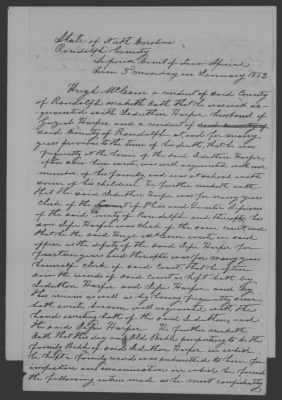 State of North Carolina
Randolph County
Superior Court of Law Special
term 3d monday in January 1853
Hugh McCain a resident of said County
of Randolph maketh oath that he was well ac-
quainted with Jeduthan Harper, husband of
Harper and a resident of
said County of Randolph at and for many
years previous to the time of his death, that he was
frequently at the home of the said Jeduthan Harper
often saw him write, was well acquainted with the
number of his family and was at school with
some of his children. He further maketh oath
that the said Jeduthan Harper was for many years
Clerk of the Court of Pleas and Quarter Sessions
of the said County of Randolph and thereafter his
son Jesse Harper was Clerk of the same court and
that he the said Hugh McCain wrote in said
office as the deputy of the said Jesse Harper for
years and thereafter was for many years
himself clerk of said Court, that he often
saw the records of said Court as kept both by
Jeduthan Harper and Jesse Harper and from
this means as well as by having frequently seen
both write became well acquainted with the
hand writing both of the said Jeduthan and
the said Jesse Harper. He further maketh
oath that this day an Old Bible purporting to be the
family Bible of said Jeduthan Harper in which
he kept a family record was submitted to him for
inspection and examination in which he found
the following entries made as he most confidently